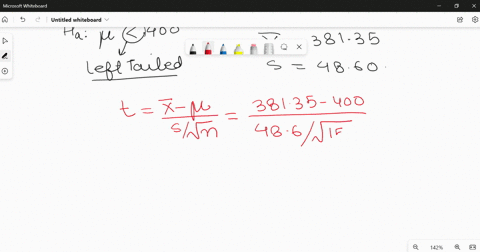 Microsoft Whiteboard
Untitled whiteboard
Ha: μ < 400
x̄ 381.35
Left Tailed
S = 48.60.
t = x̄ - μ / s/√n = 381.35 - 400 / 48.6/√15
142%